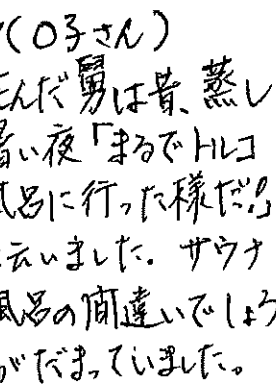 (〇子さん)
死んだ舅は昔、蒸し
暑い夜「まるでトルコ
風呂に行った様だ!」
と云いました。サウナ
風呂の間違いでしょう
がだまっていました。